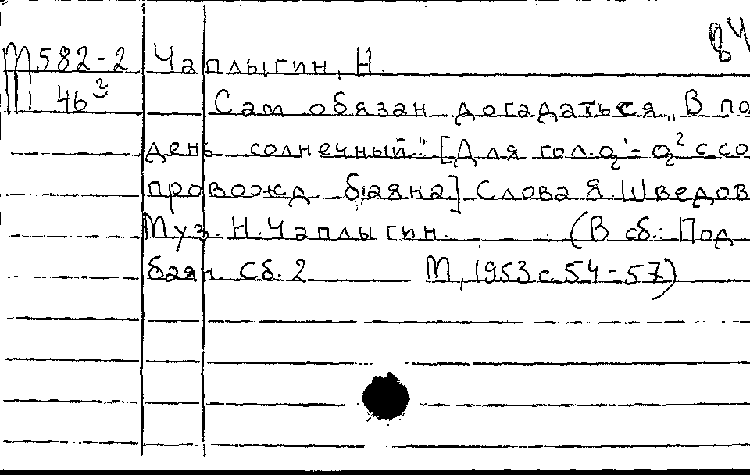 84
М582-2 Чаплыгин, Н.
III 46³ Сам обязан догадаться „В по
день солнечный" [Для гол. a¹-a² с со
провожд баяна] Слова Я. Шведов
Муз. Н. Чаплыгин. (В сб.: Под
баян. Сб. 2 М, 1953 с. 54-57)